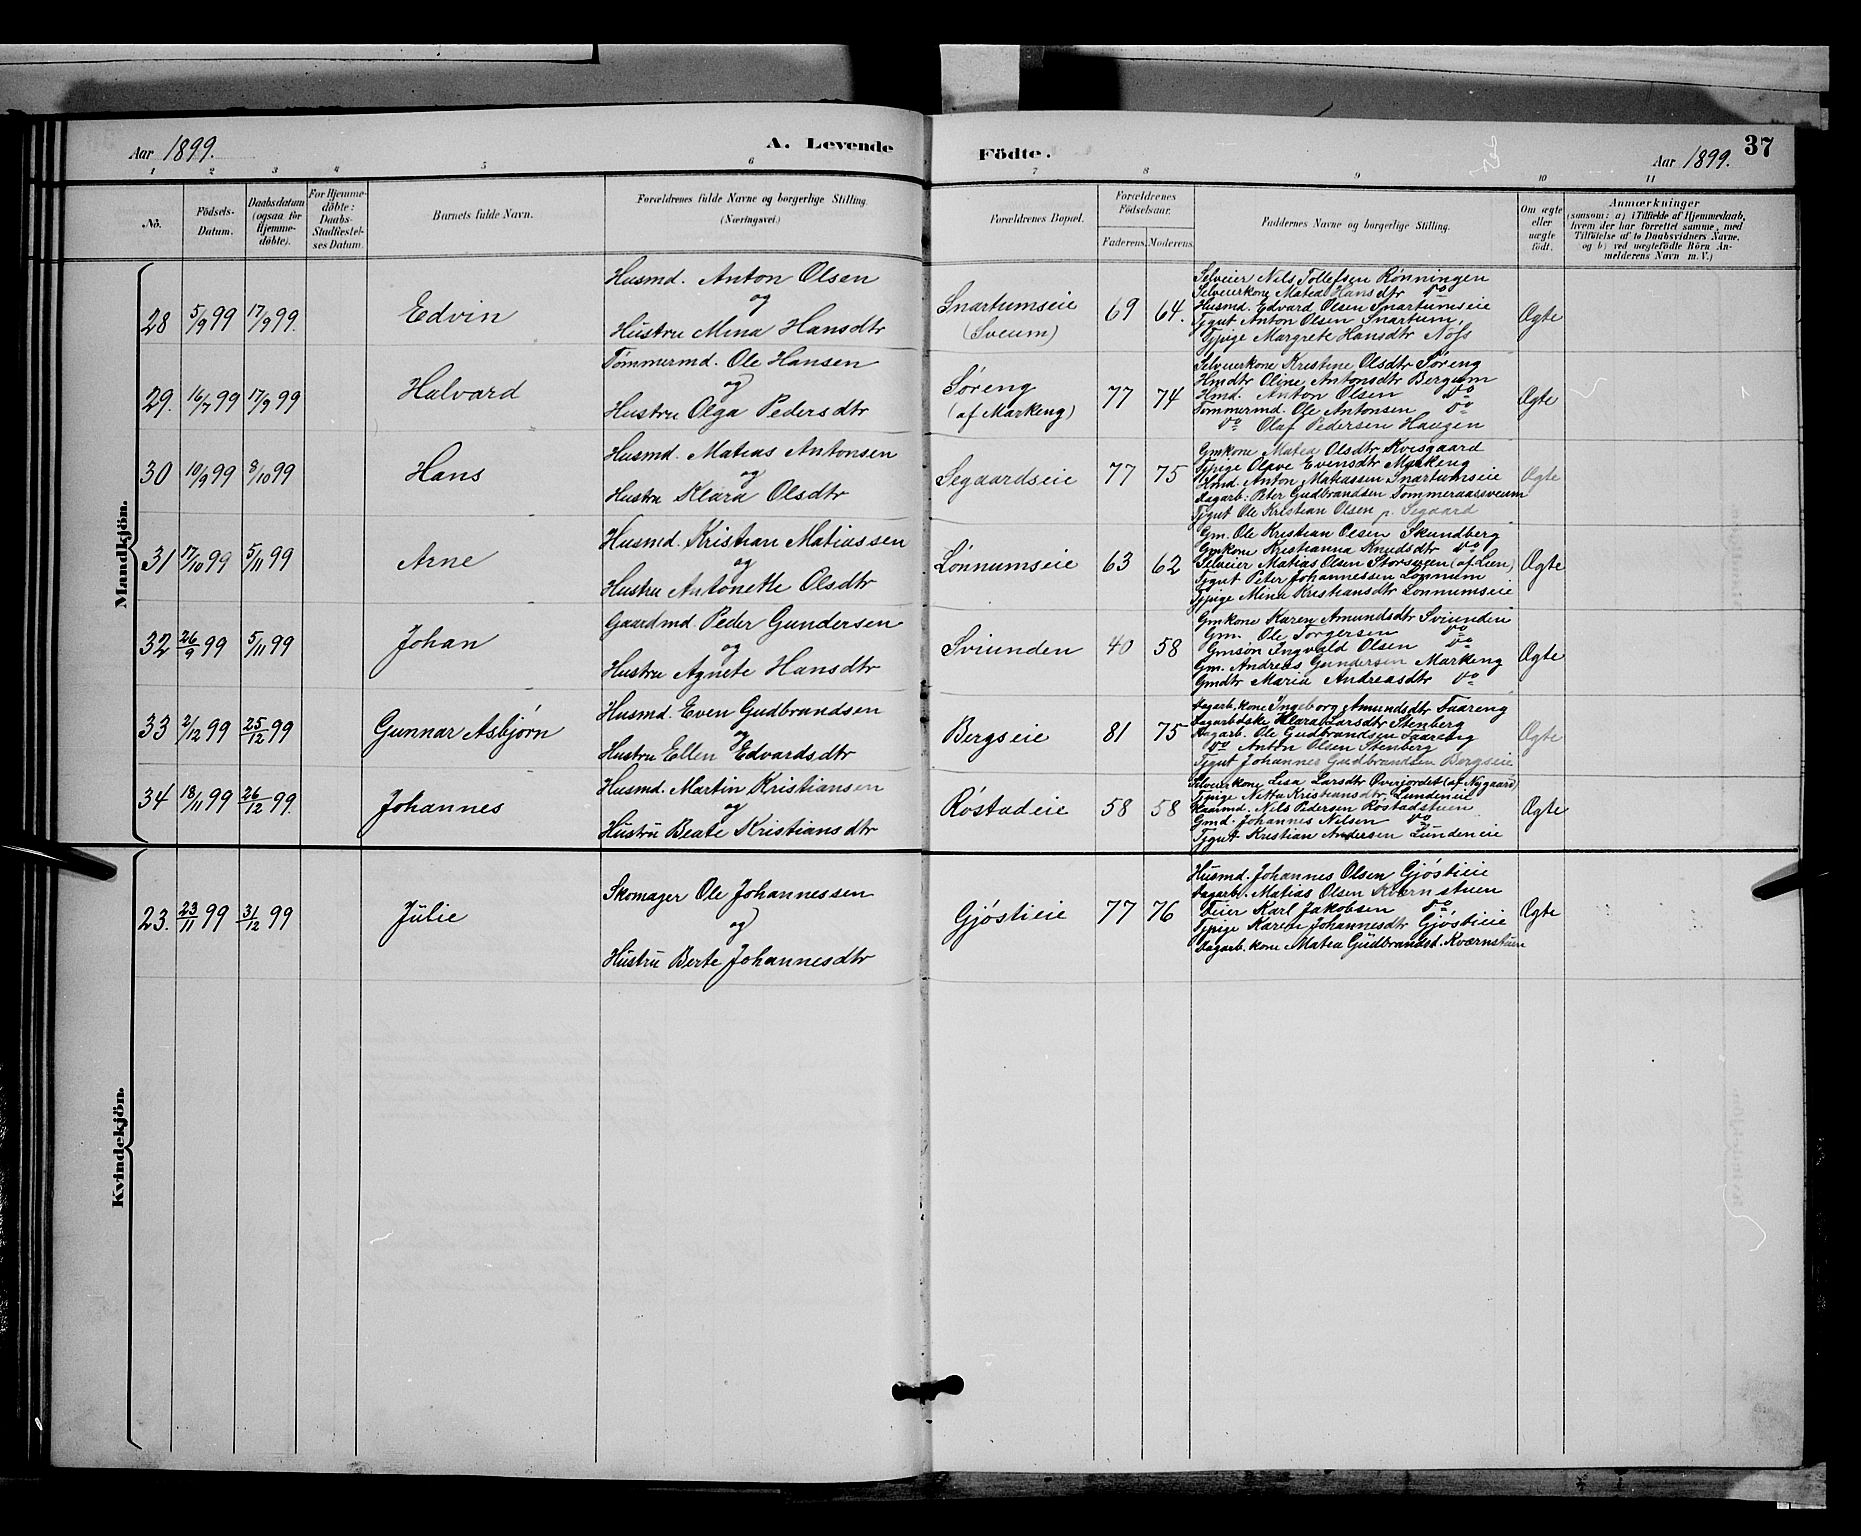 Aar 1899.
A. Levende
Födte.
Aar 1899.
37
1 2 3 4 5 6 7 8 9 10 11
No.
Födsels-Datum.
Daabsdatum (ogsaa för Hjemmedöbte).
For Hjemmedöbte: Daabs-Stadfæstelses Datum.
Barnets fulde Navn.
Forældrenes fulde Navne og borgerlige Stilling.
(Næringsvei.)
Forældrenes Bopæl.
Forældrenes Födselsaar.
Faderens. Moderens.
Faddernes Navne og borgerlige Stilling.
Om ægte eller uægte födt.
Anmærkninger
(saasom: a) i Tilfælde af Hjemmedaab, hvem der har forrettet samme, med Tilföielse af to Daabsvidners Navne, og b) ved uægtefödte Börn Anmelderens Navn m. V.)
Mandkjön.
28 5/9 99 17/9 99. Edvin
Husmd. Anton Olsen
og
Hustru Mina Hansdtr
Snartumseie
(Sveum)
69 64.
Selveier Nils Tollefsen Rønningen
Selveierkone Matea Hansdtr do
Husmd. Edvard Olsen Snartumseie
Tjgut Anton Olsen Snartum
Tjpige Margrete Hansdtr Nøss
Ægte
29. 16/7 99 17/9 99 Halvard
Tømmermd. Ole Hansen
og
Hustru Olga Pedersdtr
Søreng
(af Markeng)
77 74
Selveierkone Kristine Olsdtr Søreng
Hmdtr Oline Antonsdtr Bergum
Hmd. Anton Olsen do
Tømmermd. Ole Antonsen do
do Olaf Pedersen Haugen
Ægte
30 10/9 99 8/10 99 Hans
Husmd. Matias Antonsen
og
Hustru Klara Olsdtr
Segaardseie
77 75
Gmkone Matea Olsdtr Kvesgaard
Tjpige Olave Evensdtr Markeng
Hmd. Anton Matiassen Snartumseie
Dagarb: Peter Gudbrandsen Tømmeraassveum
Tjgut Ole Kristian Olsen p. Segaard
Ægte
31 17/10 99 5/11 99 Arne
Husmd. Kristian Matiassen
og
Hustru Antonette Olsdtr
Lønnumseie
63 62
Gm. Ole Kristian Olsen Skundberg
Gmkone Kristianna Knudsdtr do
Selveier Matias Olsen Storsveen (af Lien)
Tjgut Peter Johannessen Lønnum
Tjpige Mina Kristiansdtr Lønnumseie
Ægte
32 26/9 99 5/11 99 Johan
Gaardmd. Peder Gundersen
og
Hustru Agnete Hansdtr
Sviunden
40 58
Gmkone Karen Amundsdtr Sviunden
Gm. Ole Torgersen do
Gmsøn Ingvald Olsen do
Gm. Andreas Gundersen Markeng
Gmdtr Maria Andreasdtr do
Ægte
33 2/12 99 25/12 99 Gunnar Asbjørn
Husmd. Even Gudbrandsen
og
Hustru Ellen Edvardsdtr
Bergseie
81 75
Dagarb.kone Ingeborg Amundsdtr Faareng
Klara Larsdtr Stenberg
Dagarb. Ole Gudbrandsen Faareng
do Anton Olsen Stenberg
Tjgut Johannes Gudbrandsen Bergseie
Ægte
34 18/11 99 26/12 99. Johannes
Husmd. Martin Kristiansen
og
Hustru Beate Kristiansdtr
Røstadeie
58 58
Selveierkone Lisa Larsdtr Øverjordet (af Nygaard)
Tjpige Netta Kristiansdtr Lundeneie
Kaarmd. Nels Pedersen Røstadstuen
Gmd. Johannes Nilsen do
Tjgut Kristian Andersen Lundeneie
Ægte
Kvindekjön.
23. 23/11 99 31/12 99 Julie
Skomager Ole Johannessen
og
Hustru Berte Johannesdtr
Gjøstieie
77 76
Husmd. Johannes Olsen Gjøstieie
Dagarb. Matias Olsen Kvernstuen
Feier Karl Jakobsen do
Tjpige Karen Johannesdtr Gjøstieie
Dagarb.kone Matea Gudbrandsd. Kværnstuen
Ægte